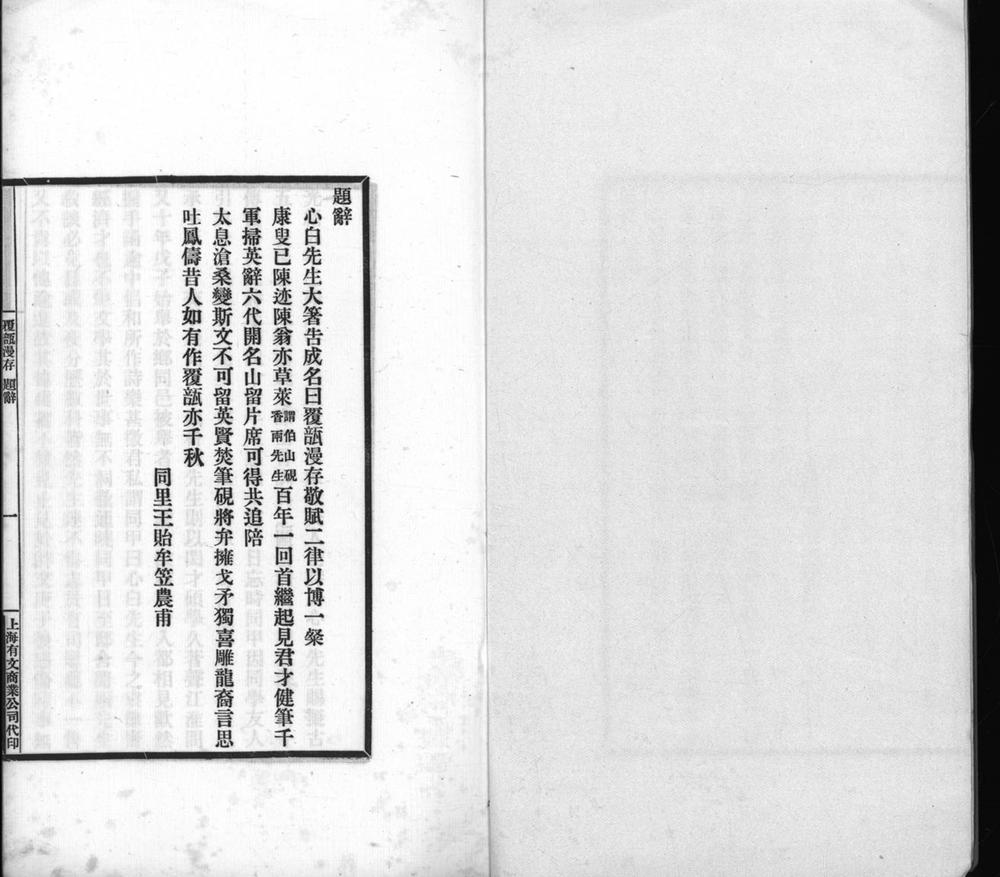 題辭
心白先生大箸告成名曰覆瓿漫存敬賦二律以博一粲
康叟已陳迹陳翁亦草萊謂伯山硯香雨先生百年一回首繼起見君才健筆千
軍掃英辭六代開名山留片席可得共追陪
太息滄桑變斯文不可留英賢焚筆硯將弁擁戈矛獨喜雕龍裔言思
吐鳳儔昔人如有作覆瓿亦千秋
同里王貽牟笠農甫
覆瓿漫存 題辭
一
上海有文商業公司代印